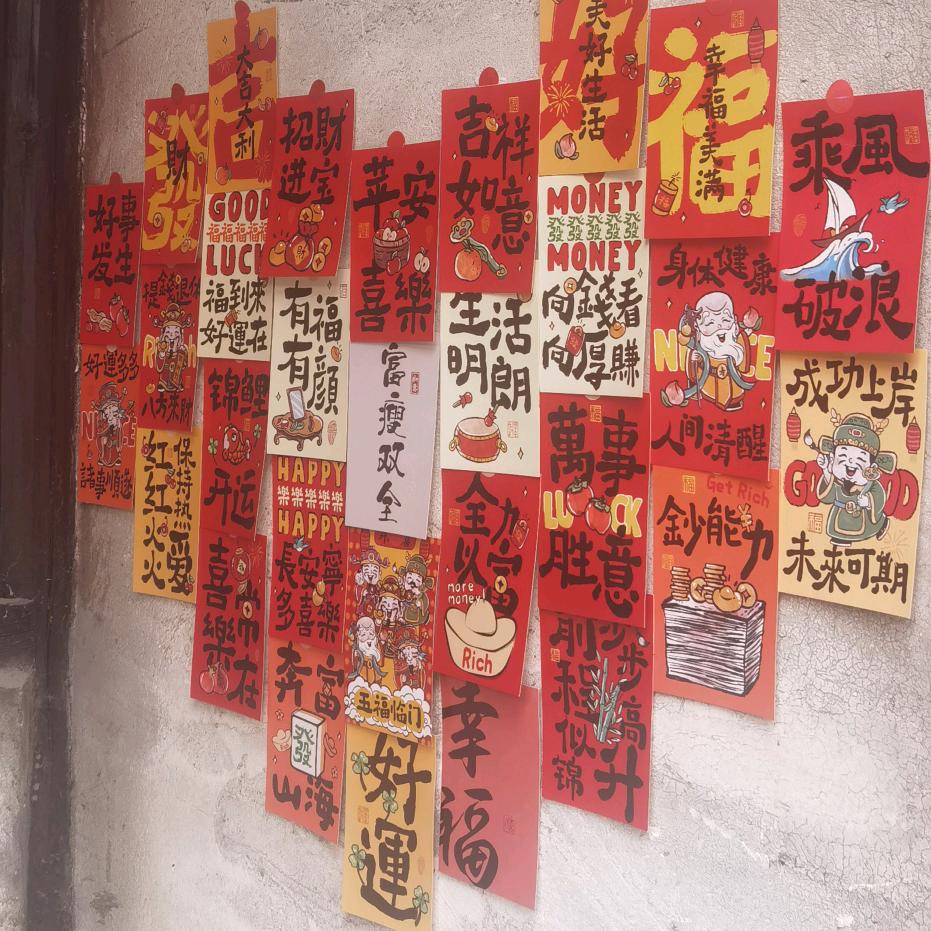 好事
发生
好運多多
NICE
諸事順遂
發
財
八方来财
保持热爱
红红火火
吉
大吉大利
GOOD
福福福福福
LUCK
福到来
好運在
锦鲤
开运
喜樂
常在
招财
进宝
有福
有顔
HAPPY
樂樂樂樂樂
HAPPY
長安寧
多喜樂
奔富
山海
發
苹安
喜樂
富瘦双全
五福临门
好運
吉祥
如意
生活
明朗
全力
以富
more
money!
Rich
幸福
好
美好生活
MONEY
發發發發發
MONEY
向錢看
向厚賺
萬事
LUCK
胜意
步步高升
前程似锦
福
幸福美满
身体健康
NICE
人间清醒
Get Rich
鈔能力
乘風
破浪
成功上岸
GOOD
未來可期